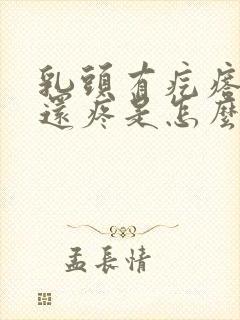 乳頭有疙瘩
還疼是怎麼
孟長情